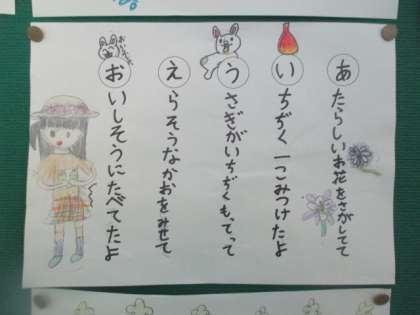 あたらしいお花をさがしてて
いちぢく一こみつけたよ
うさぎがいちぢくもってって
えらそうなかおをみせて
おいしそうにたべてたよ